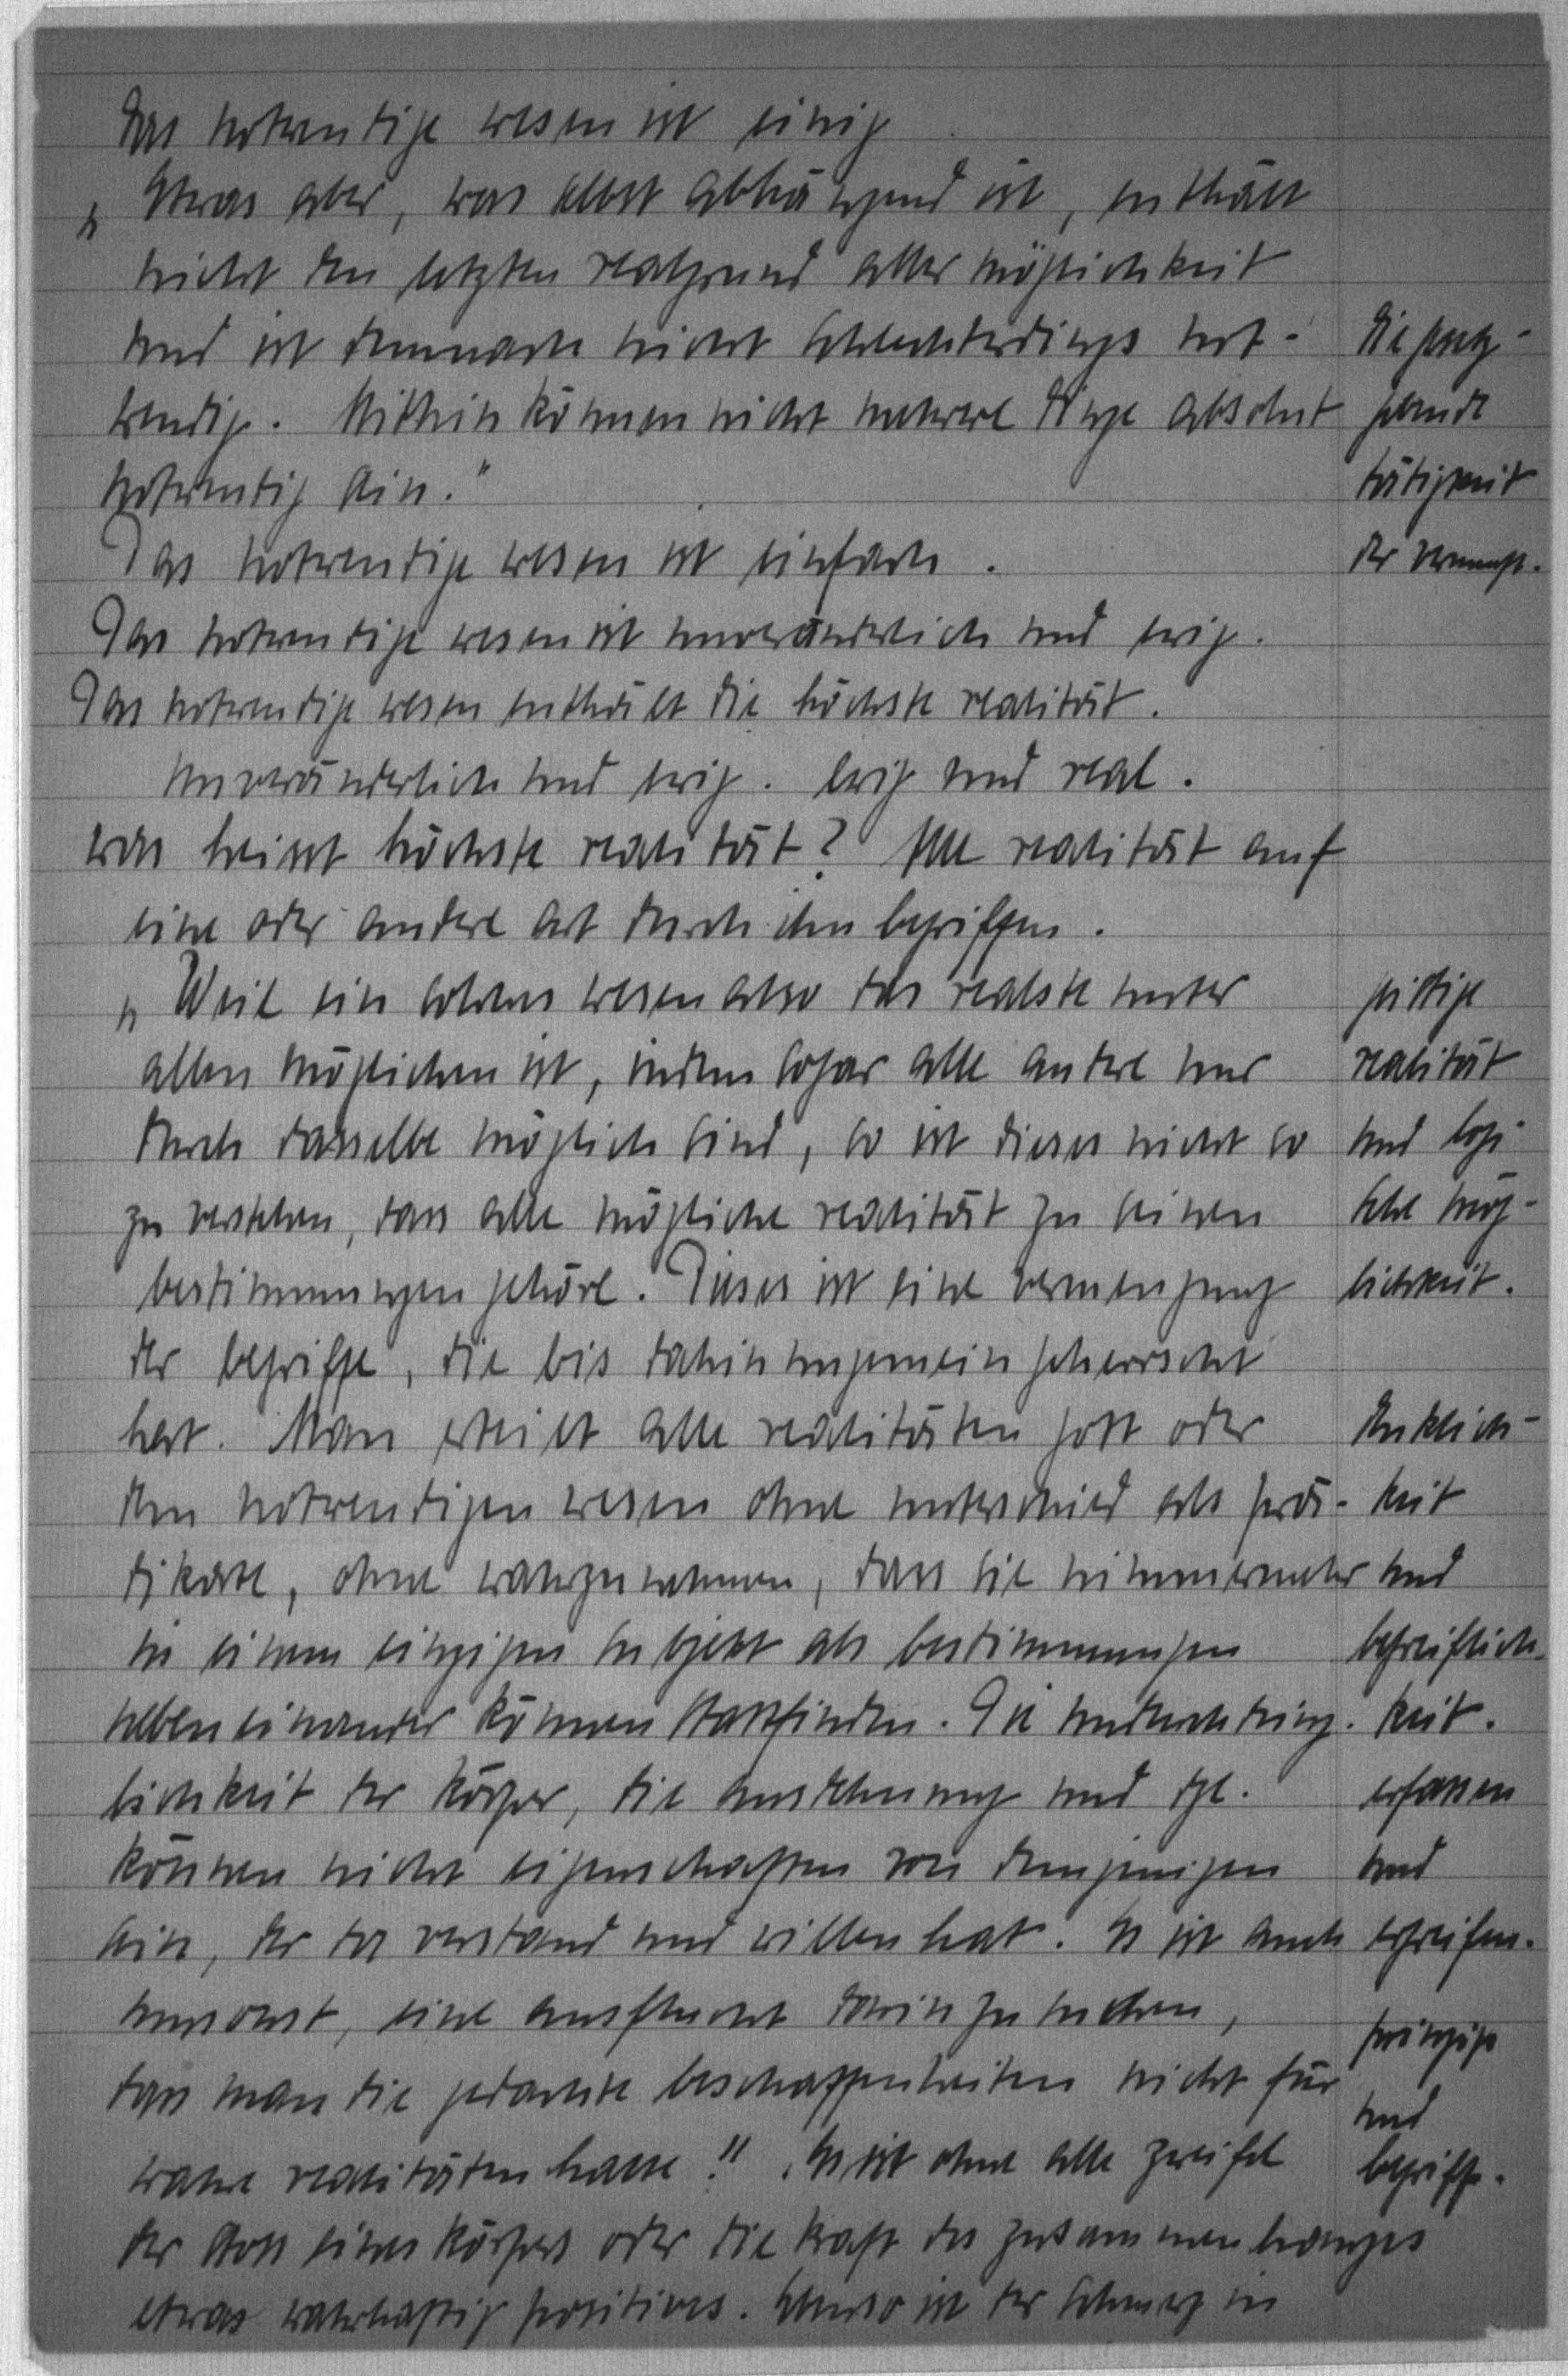 das notwendige wesen ist einig
„ Etwas aber, was selbst abhängend ist, enthält
nicht den letzten realgrund aller möglichkeit
und ist demnach nicht schlechterdings not-
wendig. Mithin können nicht mehrere dinge absolut
notwendig sein."
Das notwendige wesen ist einfach.
Das notwendige wesen ist unveränderlich und ewig.
Das notwendige wesen enthält die höchste realität.
unveränderlich und ewig. ewig und real.
was heisst höchste realität? Alle realität auf
eine oder andere art durch ihn begriffen.
„ Weil ein solches wesen also das realste unter
allen möglichen ist, indem sogar alle andere nur
durch dasselbe möglich sind, so ist dieses nicht so
zu verstehen, dass alle mögliche realität zu seinen
bestimmungen gehöre. Dieses ist eine vermengung
der begriffe, die bis dahin ungemein geherrscht
hat. Man erteilt alle realitäten gott oder
dem notwendigen wesen ohne unterschied als prä-
dikate, ohne wahrzunehmen, dass sie nimmermehr
in einem einzigen subjekt als bestimmungen
nebeneinander können stattfinden. Die undurchdring-
lichkeit der körper, die ausdehnung und dgl.
können nicht eigenschaften von demjenigen
sein, der da verstand und willen hat. Es ist auch
umsonst, eine ausflucht darin zu suchen,
dass man die gedachte beschaffenheiten nicht für
wahre realitäten halte!! Es ist ohne alle zweifel
der stoss eines körpers oder die kraft des zusammenhanges
etwas wahrhaftig positives. Ebenso ist der schmerz in
die gesetz-
gebende
tätigkeit
der vernunft.
geistige
realität
und logi-
sche mög-
lichkeit.
denklich-
keit
und
begreiflich-
keit.
erfassen
und
ergreifen.
prinzip
und
begriffe.